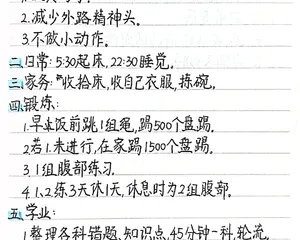 2.减少外路精神头.
3.不放小动作.
二.日常:5:30起床,22:30睡觉,
三.家务:收拾床,收自己衣服,拣碗,
四.锻炼:
1.早上饭前跳1组绳,踢500个盘踢.
2若1.未进行,在家踢1500个盘踢.
3.1组腹部练习.
4.1、2练3天休1天,休息时为2组腹部.
五.学业:
1整理各科错题,知识点,45分钟一科,轮流,